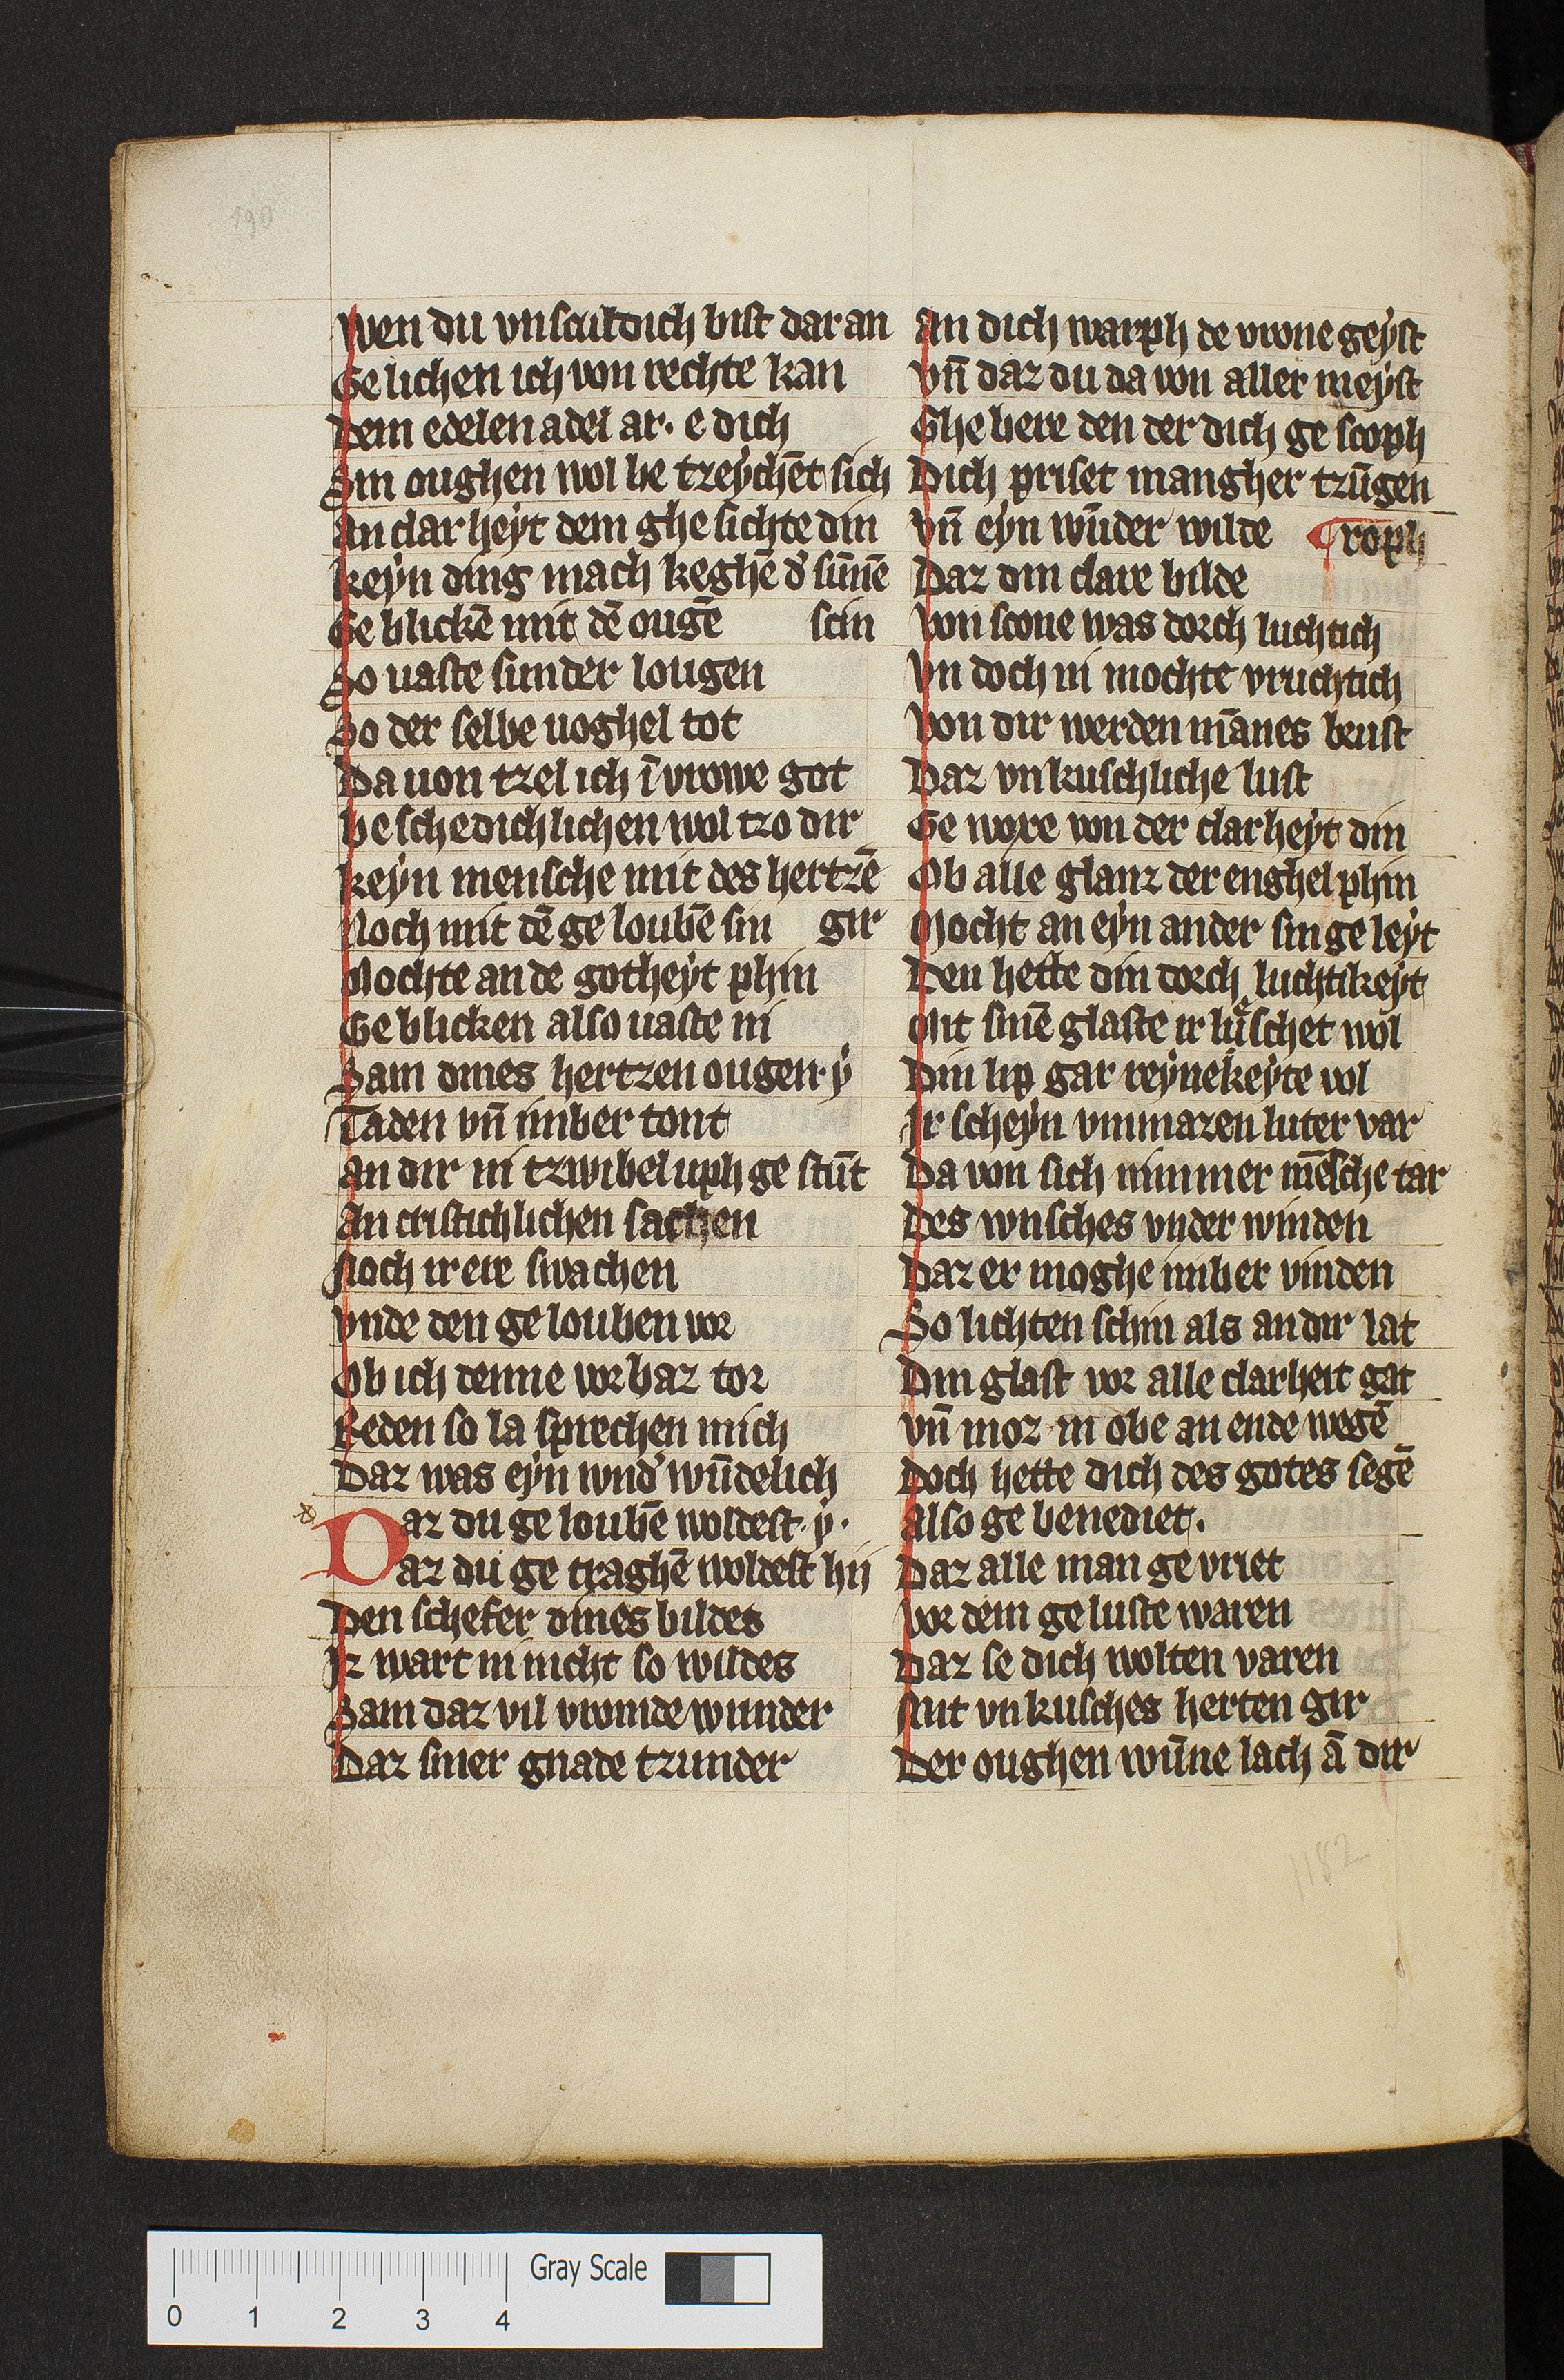 190
Wen du vnsculdich bist dar an
Ge lichen ich von rechte kan
Dem edelen adel ar · e dich
Sin oughen wol be tzeychēt sich
An clar heyt dem ghe sichte din
keyn ding mach keghē d' sūnē
Ge blickē mit dē ougē scin
So uaste sunder lougen
So der selbe uoghel tot
Da uon tzel ich ī vrowe got
be schedichlichen wol tzo dir
keyn mensche mit des hertzē
Noch mit dē ge loubē sin gir
Mochte an de gotheyt phin
Ge blicken also uaste ni
Sam dines hertzen ougen · y
Taden vn̄ imber tont
An dir ni tzwibel uph ge stūt
An cristichlichen sachen
Noch ir ere swachen
Vnde den ge louben vor
Ob ich denne vor baz tor
Reden so la sprechen mich
Daz was eyn wnd' wūdelich
Daz du ge loubē woldest · y ·
Daz du ge traghē woldest hij
Den schefer dines bildes
Iz wart ni nicht so wildes
Sam daz vil vromde wunder
Daz siner gnade tzunder
An dich warph de vrone geyst
Vn̄ daz du da von aller meyst
Ghe bere den der dich ge scoph
Dich priset mangher tzūgen
Vn̄ eyn wūder wilde ¶ roph
Daz din clare bilde
Von scone was dorch luchtich
Vn doch ni mochte vruchtich
Von dir werden mānes brust
Daz vnkuschliche lust
Ge woxe von der clarheyt din
Ob alle glanz der enghel phin
Mocht an eyn ander sin ge leyt
Den hette din dorch luchtikeyt
Mit sinē glaste ir luͤschet wol
Din lip gar reynekeyte vol
Ir scheyn vnmazen luter var
Da von sich nimmer mēsche tar
Des wnsches vnder winden
Daz er moghe imber vinden
So lichten schin als an dir lat
Din glast vor alle clarheit gat
Vn̄ moz in obe an ende wegē
Doch hette dich des gotes segē
Also ge benediet.
Daz alle man ge vriet
Vor dem ge luste waren
Daz se dich wolten varen
Mit vnkusches herten gir
Der oughen wūne lach ā dir
1182
Gray Scale
0 1 2 3 4